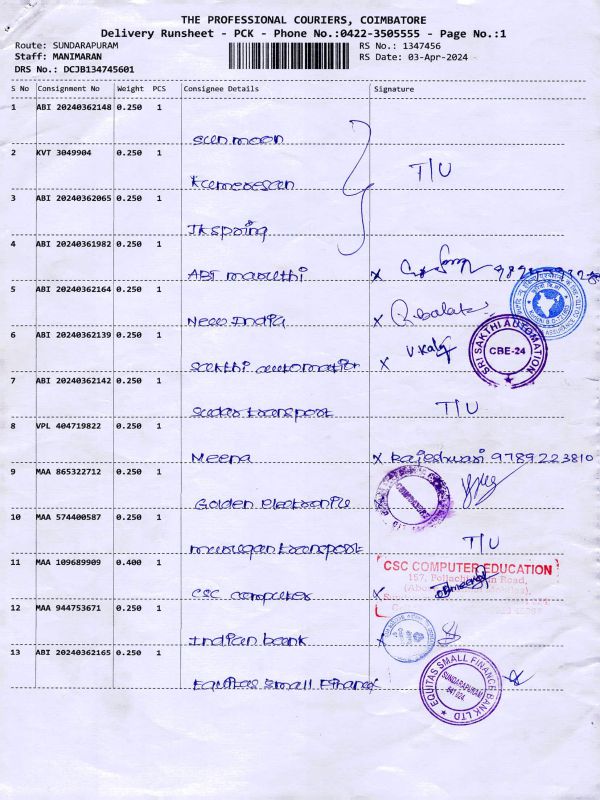 THE PROFESSIONAL COURIERS, COIMBATORE
Delivery Runsheet - PCK - Phone No.:0422-3505555 - Page No.:1
Route: SUNDARAPURAM
Staff: MANIMARAN
DRS No.: DCJB134745601
RS No.: 1347456
RS Date: 03-Apr-2024
S No Consignment No Weight PCS Consignee Details Signature
1 ABI 20240362148 0.250 1
sun moon
2 KVT 3049904 0.250 1
T/U
Kumeresan
3 ABI 20240362065 0.250 1
JK spring
4 ABI 20240361982 0.250 1
ABT maruthi x
5 ABI 20240362164 0.250 1
New India x R.balak
6 ABI 20240362139 0.250 1
SRI SAKTHI AUTOMATION CBE-24
sakthi automation x
7 ABI 20240362142 0.250 1
T/U
sudar transport
8 VPL 404719822 0.250 1
Meena x Rajeshwari 9789223810
9 MAA 865322712 0.250 1
Golden
10 MAA 574400587 0.250 1
T/U
murugan transport
11 MAA 109689909 0.400 1
CSC COMPUTER EDUCATION
157, Pollachi Main Road,
CSC computer x
12 MAA 944753671 0.250 1
Indian bank x
13 ABI 20240362165 0.250 1
EQUITAS SMALL FINANCE BANK LTD SUNDARAPURAM 641 024
Equitas small Finance